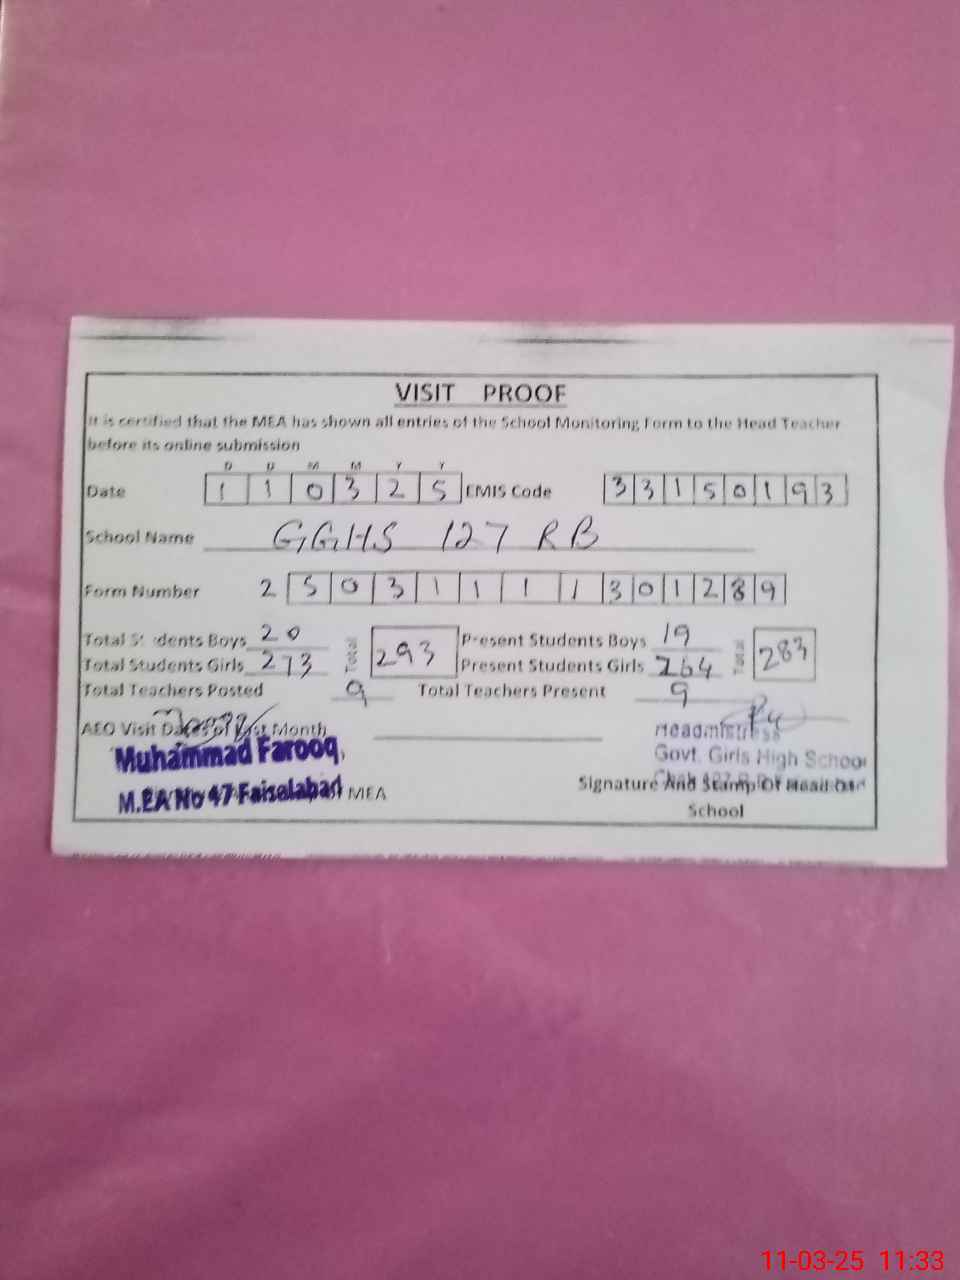 VISIT PROOF
It is certified that the MEA has shown all entries of the School Monitoring Form to the Head Teacher
before its online submission
D D M M Y Y
Date 1 1 0 3 2 5 EMIS Code 3 3 1 5 0 1 9 3
School Name GGHS 127 RB
Form Number 2 5 0 3 1 1 1 1 3 0 1 2 8 9
Total Students Boys 20 Total 293 Present Students Boys 19 Total 283
Total Students Girls 273 Present Students Girls 264
Total Teachers Posted 9 Total Teachers Present 9
AEO Visit Dates of Last Month
Headmistress
Muhammad Farooq,
Govt. Girls High School
M.EA No 47 Faisalabad MEA
Signature And Stamp Of Head Of
School
11-03-25 11:33